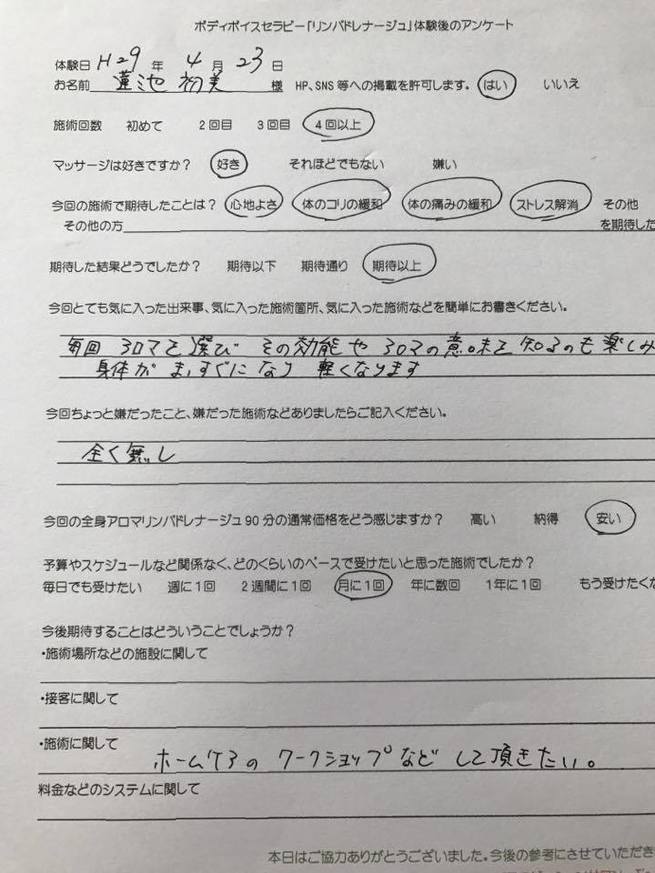 ボディボイスセラピー「リンパドレナージュ」体験後のアンケート
体験日 H29 年 4 月 23 日
お名前 蓮池 初美 様 HP、SNS 等への掲載を許可します。 はい いいえ
施術回数 初めて 2回目 3回目 4回以上
マッサージは好きですか? 好き それほどでもない 嫌い
今回の施術で期待したことは? 心地よさ 体のコリの緩和 体の痛みの緩和 ストレス解消 その他
その他の方 を期待した
期待した結果どうでしたか? 期待以下 期待通り 期待以上
今回とても気に入った出来事、気に入った施術箇所、気に入った施術などを簡単にお書きください。
毎回 アロマを選び その効能や アロマの意味を知るのも楽しみ
身体がまっすぐになり 軽くなります
今回ちょっと嫌だったこと、嫌だった施術などありましたらご記入ください。
全く無し
今回の全身アロマリンパドレナージュ90分の通常価格をどう感じますか? 高い 納得 安い
予算やスケジュールなど関係なく、どのくらいのペースで受けたいと思った施術でしたか?
毎日でも受けたい 週に1回 2週間に1回 月に1回 年に数回 1年に1回 もう受けたくな
今後期待することはどういうことでしょうか?
・施術場所などの施設に関して
・接客に関して
・施術に関して ホームケアの ワークショップなど して頂きたい。
料金などのシステムに関して
本日はご協力ありがとうございました。今後の参考にさせていただき